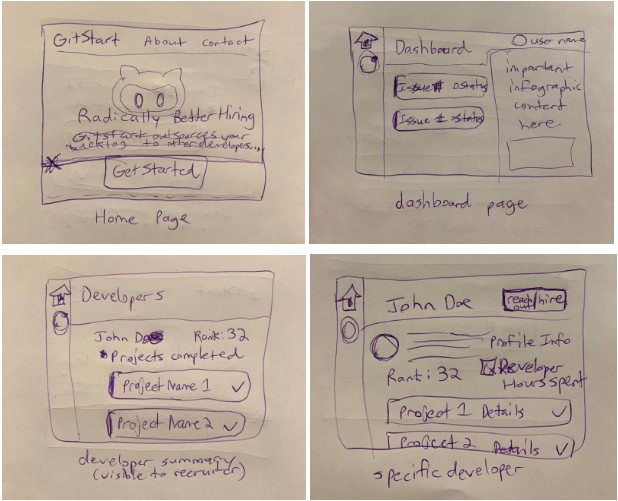 GitStart About Contact
Radically Better Hiring
Gitstart outsources your
backlog to other developers...
Get Started
Home Page
Dashboard
user name
Issue # Status
Issue # Status
important
infographic
content
here
dashboard page
Developers
John Doe Rank: 32
Projects completed
Project Name 1
Project Name 2
developer summary
(visible to recruiter)
John Doe
reach out/hire
Profile Info
Rank: 32
Developer
Hours spent
Project 1 Details
Project 2 Details
specific developer